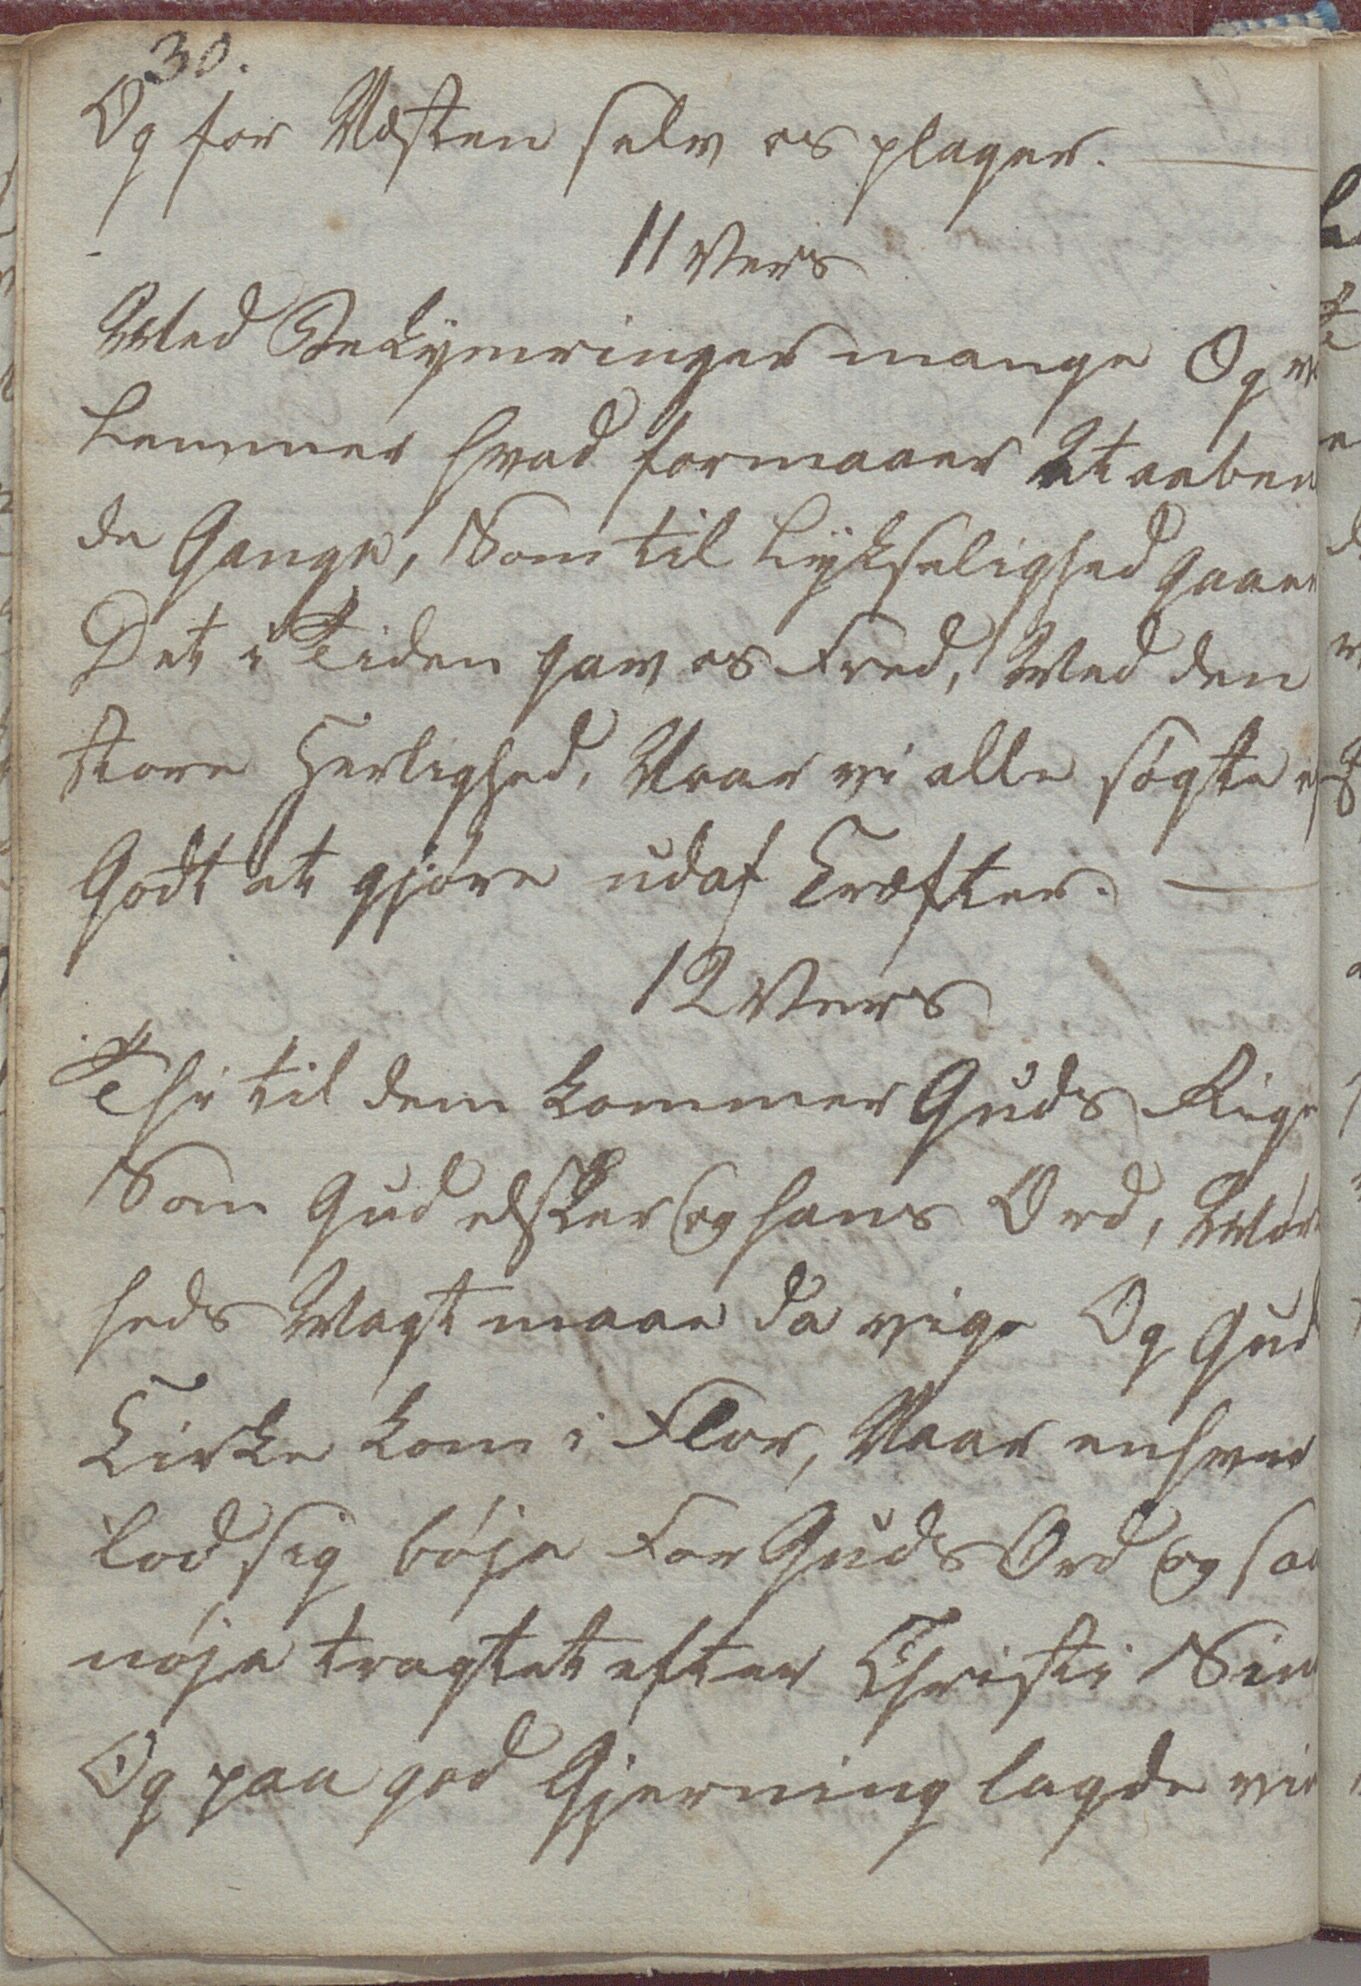 30.
Og for Næsten selv os plager.
11 Vers
Med Bekymringer mange Og
kemmer hvad formaaer At aaben
de Gange, Som til Lykselighed gaaer
Det i Tiden gav os Fred, Med den
store Herlighed, Naar vi alle søgte
Godt at gjøre udaf Kræfter.
12 Vers
Thi til dem kommer Guds Rige
Som Gud elsker og hans Ord,
heds Magt maae da vige Og Gud
Kirke kom i Flor, Naar enhver
lod sig bøje For Guds Ord og saa
nøje tragtet efter Christi Sin
Og paa god Gjerning lagde vin